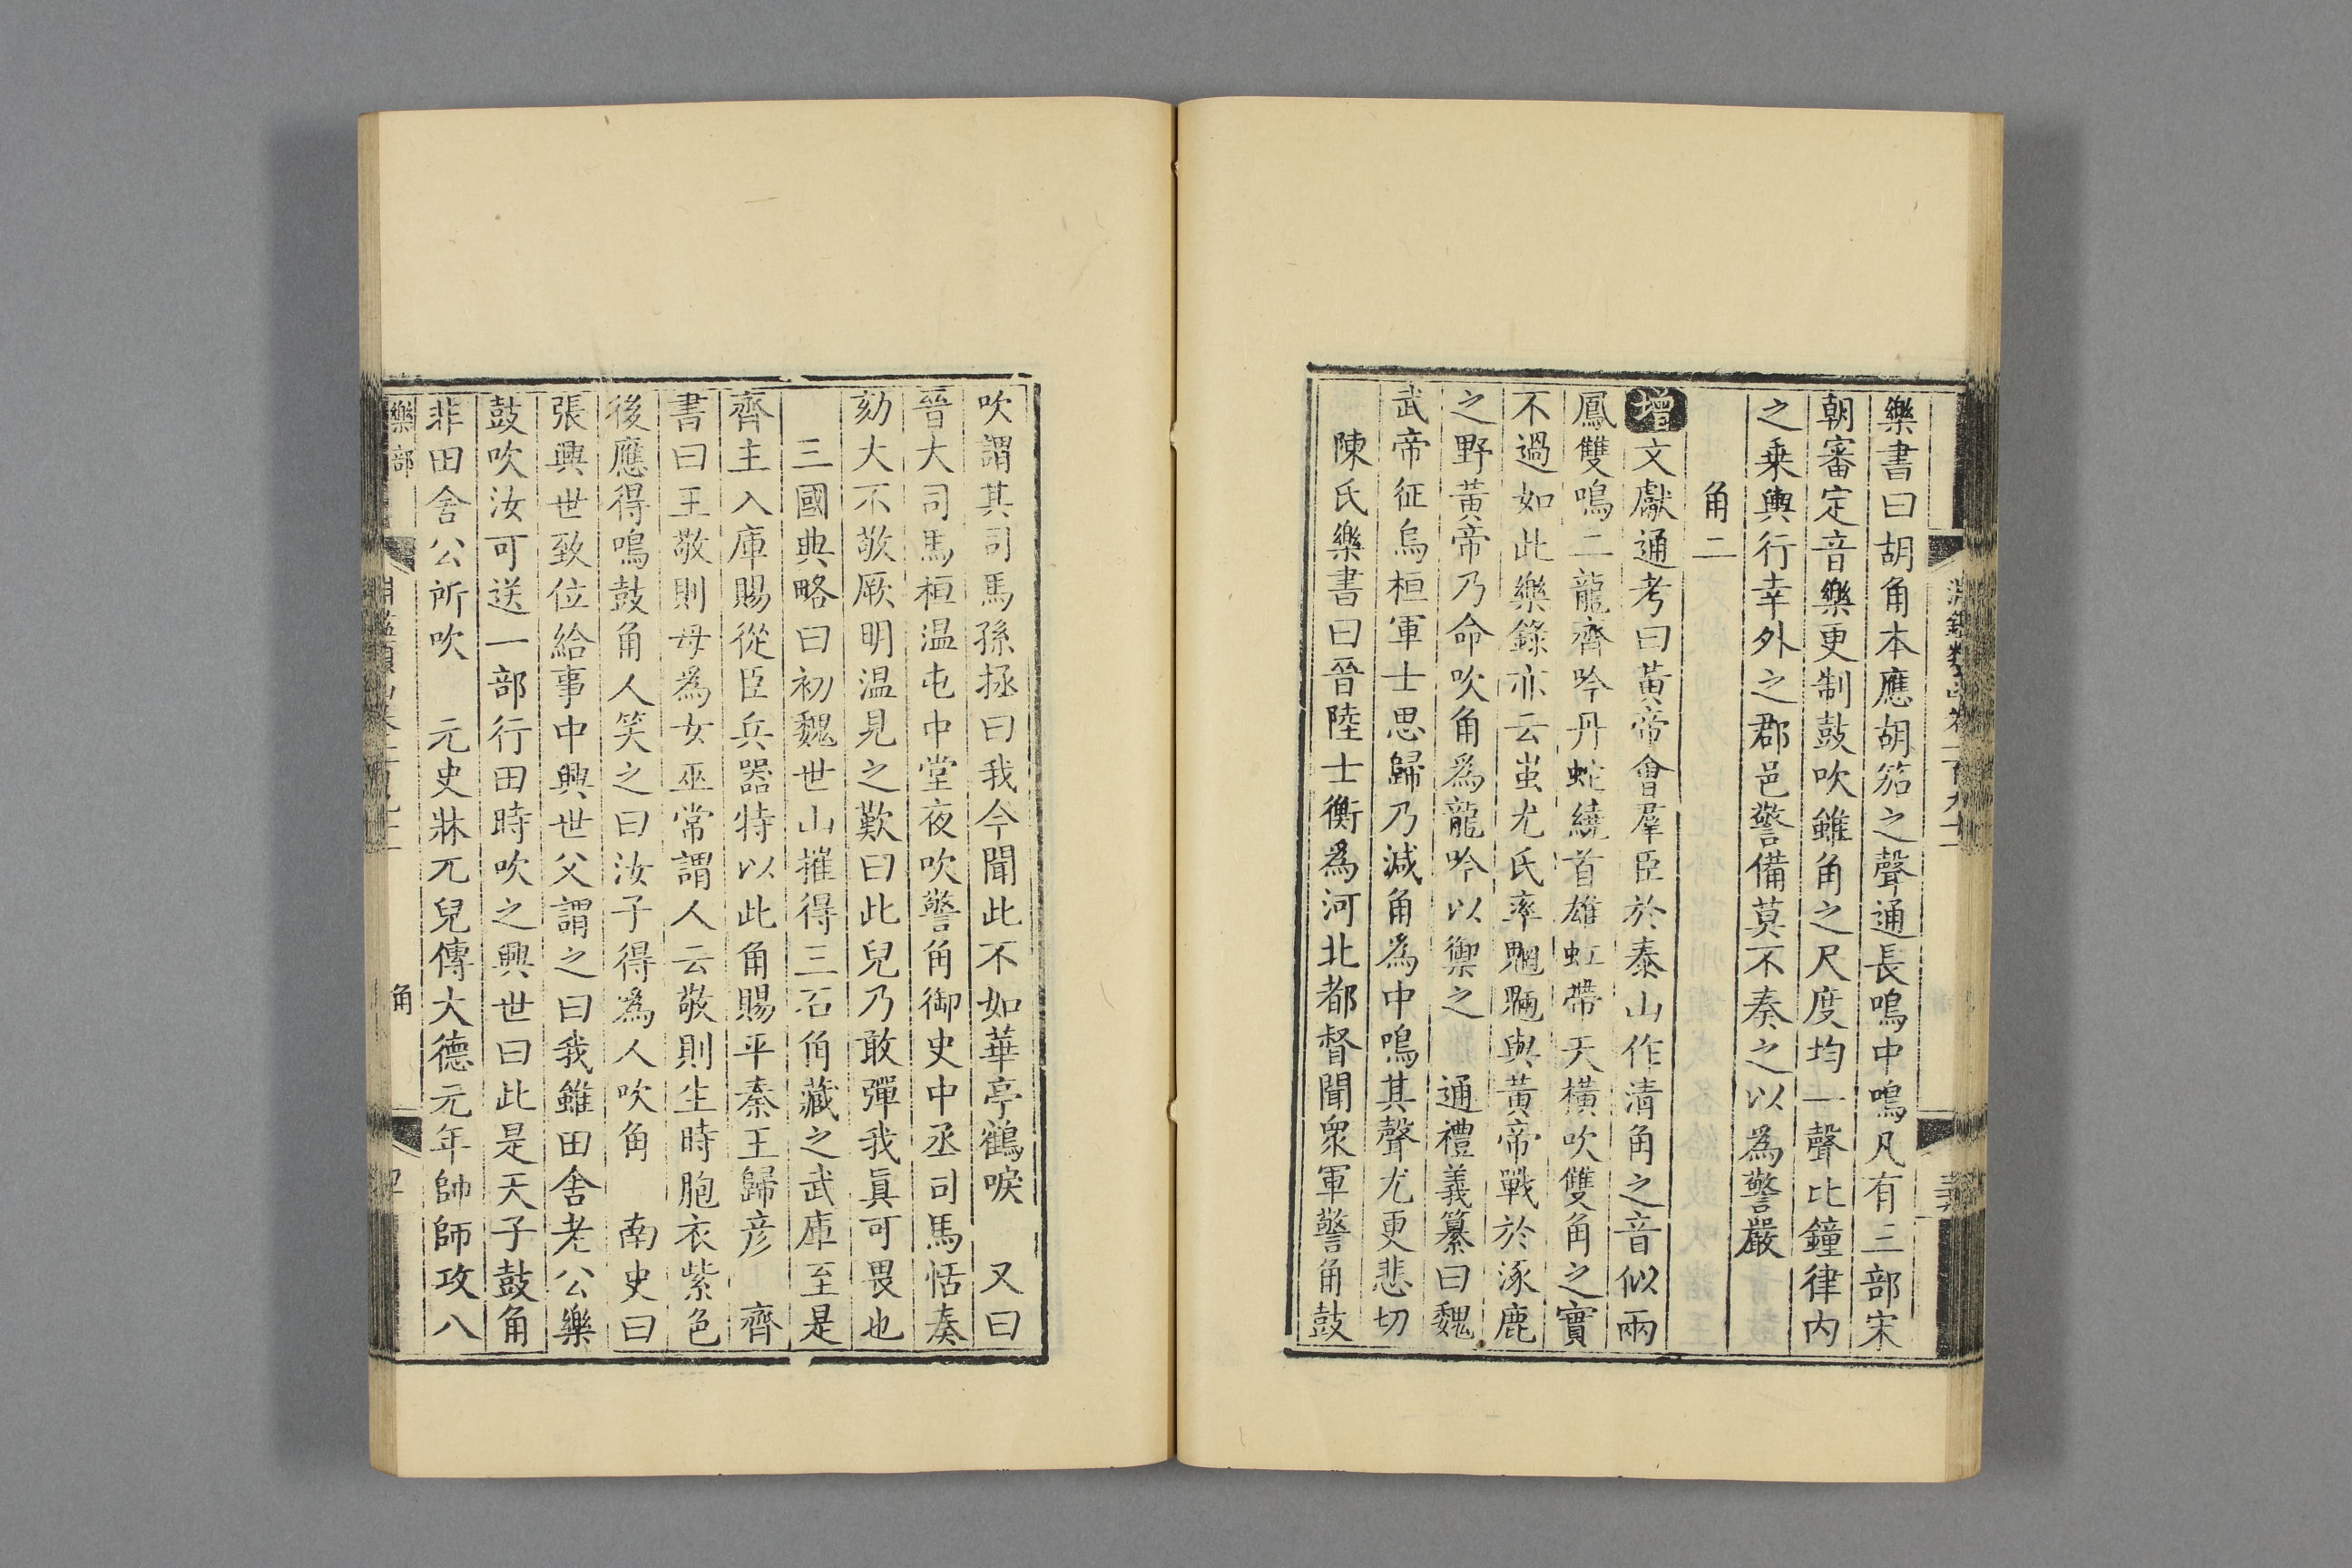 樂書曰胡角本應胡笳之聲通長鳴中鳴凡有三部宋
朝審定音樂更制鼓吹雖角之尺度均一聲比鐘律内
之乗輿行幸外之郡邑警備莫不奏之以為警嚴
角二
增文獻通考曰黃帝會羣臣於泰山作清角之音似兩
鳳雙鳴二龍齊吟丹蛇繞首雄虹帶天橫吹雙角之實
不過如此樂錄亦云蚩尤氏率魍魎與黃帝戰於涿鹿
之野黃帝乃命吹角為龍吟以禦之　通禮義纂曰魏
武帝征烏桓軍士思歸乃減角為中鳴其聲尤更悲切
陳氏樂書曰晉陸士衡為河北都督聞衆軍警角鼓
吹謂其司馬孫拯曰我今聞此不如華亭鶴唳　又曰
晉大司馬桓温屯中堂夜吹警角御史中丞司馬恬奏
劾大不敬厥明温見之歎曰此兒乃敢彈我眞可畏也
三國典略曰初魏世山摧得三石角藏之武庫至是
齊主入庫賜從臣兵器特以此角賜平秦王歸彦　齊
書曰王敬則母為女巫常謂人云敬則生時胞衣紫色
後應得鳴鼓角人笑之曰汝子得為人吹角　南史曰
張興世致位給事中興世父謂之曰我雖田舍老公樂
鼓吹汝可送一部行田時吹之興世曰此是天子鼓角
非田舍公所吹　元史牀兀兒傳大德元年帥師攻八
樂部
角